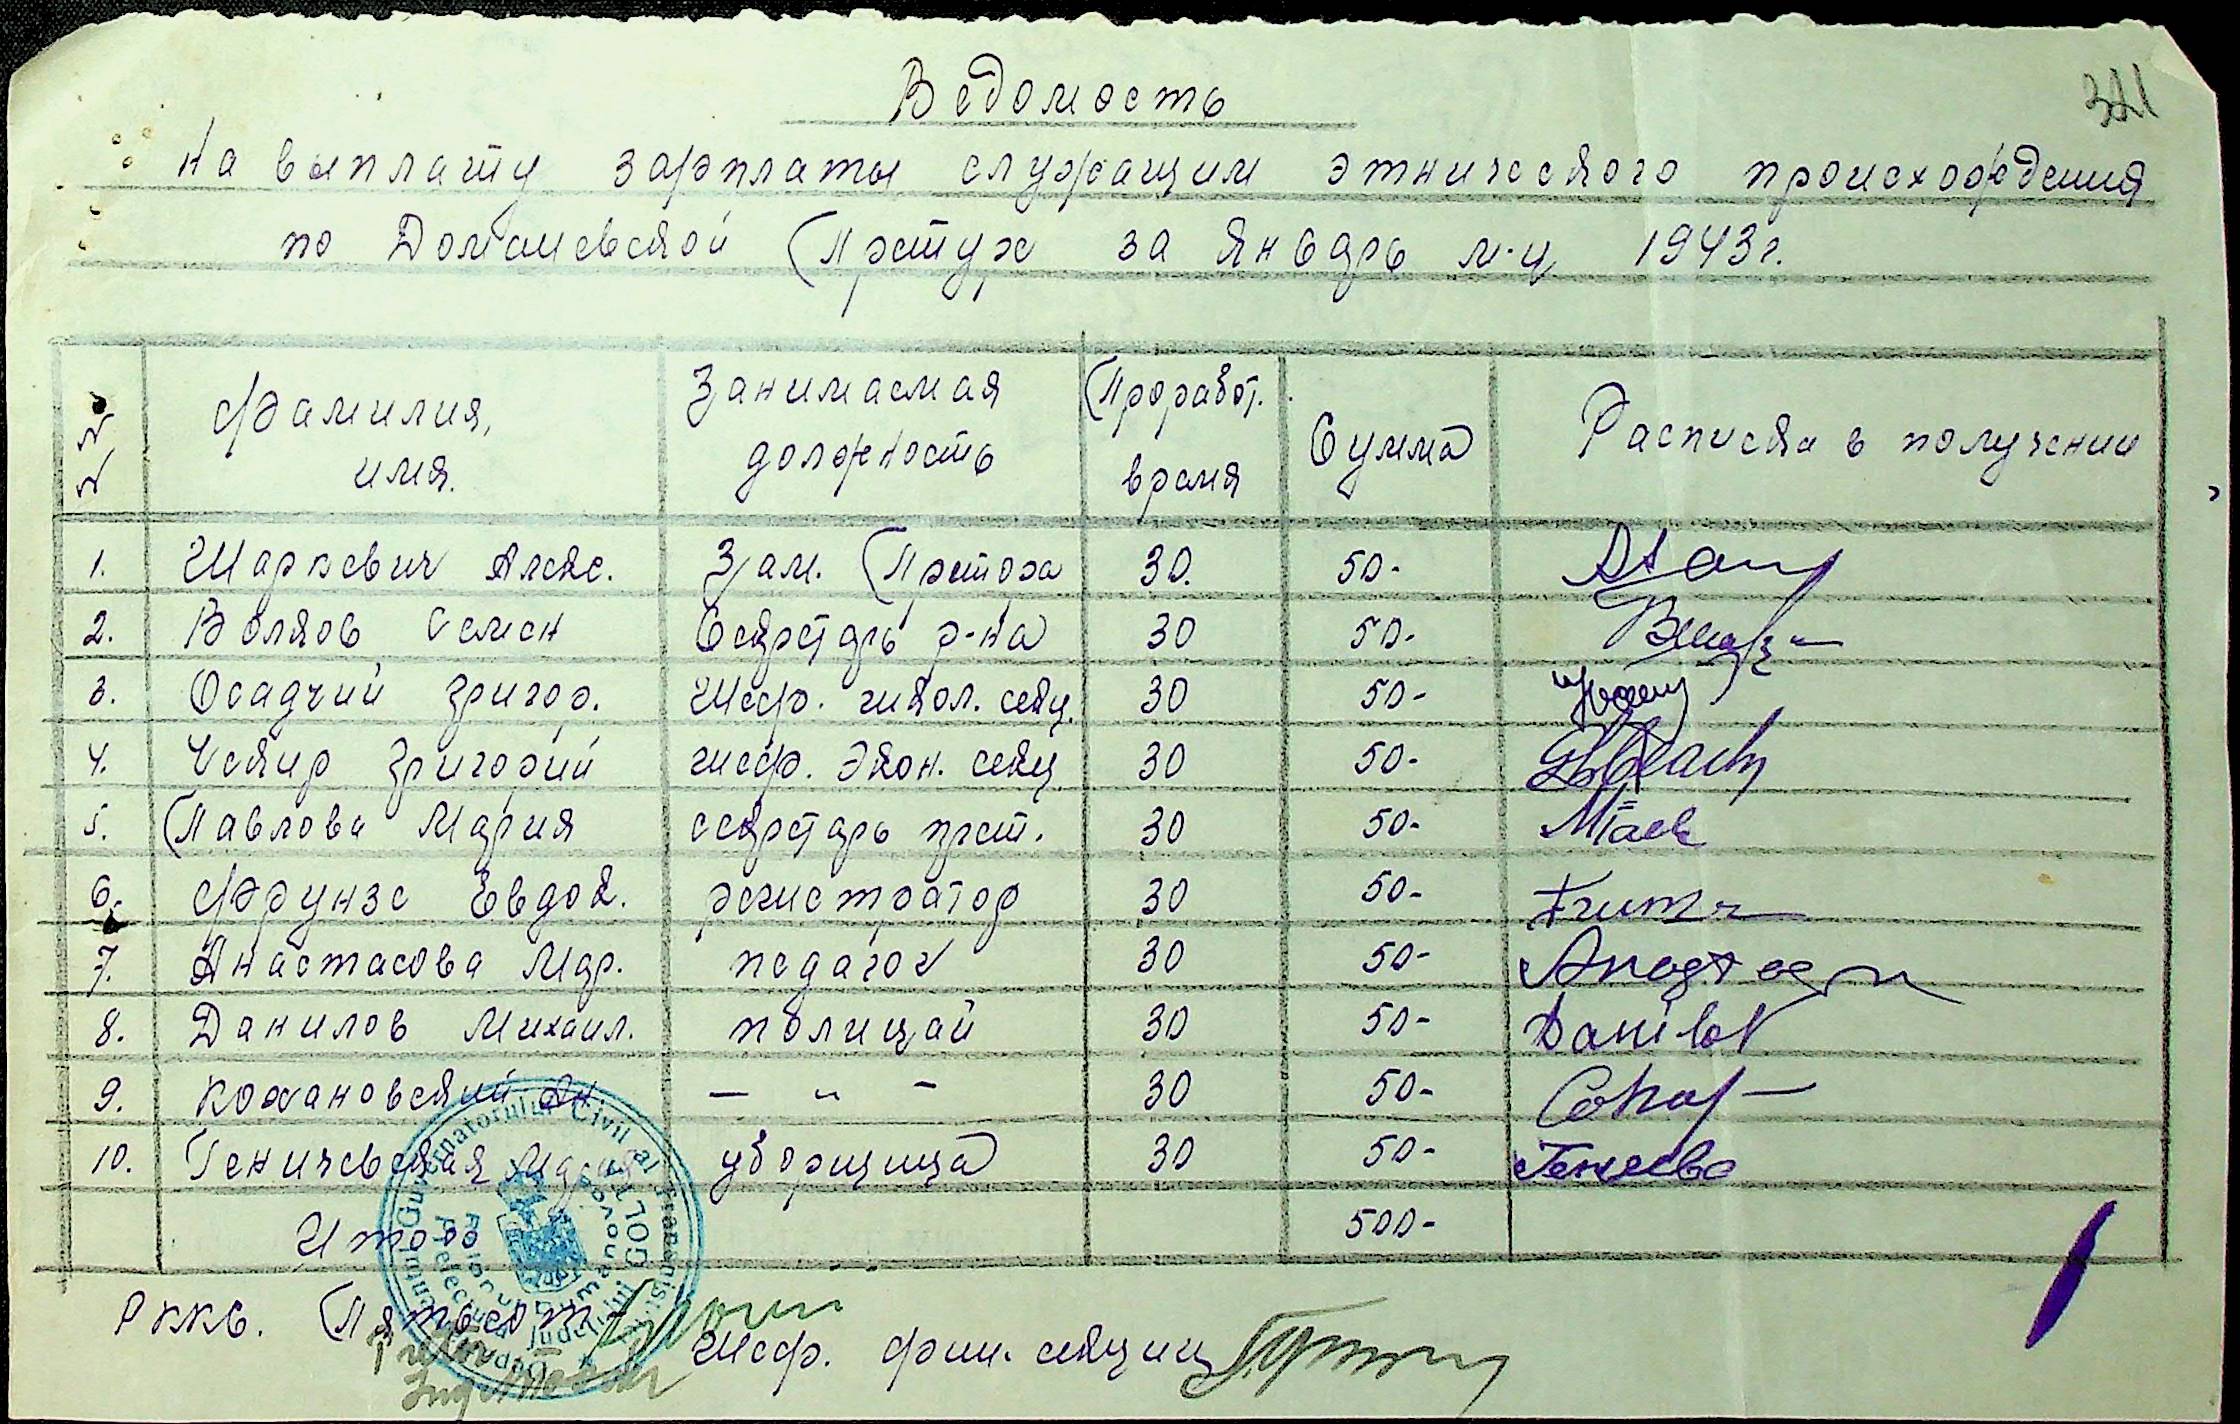 321
Ведомость
на выплату зарплаты служащим этнического происхождения
по Доманевской Претуре за Январь м-ц 1943г.
№№ Фамилия, имя. Занимаемая должность Проработ. время Сумма Расписка в получении
1. Шаркевич Алекс. Зам. Претора 30. 50-
2. Волков Семен Секретарь р-на 30 50-
3. Осадчий Григор. Шеф. школ. секц. 30 50-
4. Чекир Григорий шеф. Экон. секц 30 50-
5. Павлова Мария секретарь прет. 30 50-
6. Фрунзе Евдок. регистратор 30 50-
7. Анастасова Мар. педагог 30 50-
8. Данилов Михаил. полицай 30 50- Danilov
9. Кохановский Ан. — " — 30 50-
10. Геничевская Мария уборщица 30 50-
Итого 500-
Guvernatorului Civil al Transnistriei
GOLTA
Пятьсот
Pretor
Шеф. фин. секции